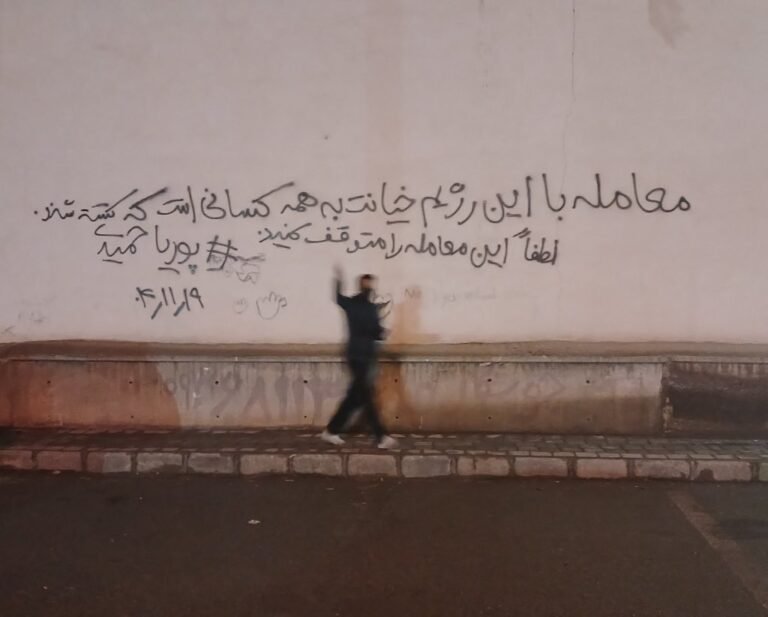 معامله با این رژیم خیانت به همه کسانی است که کشته شدند.
لطفاً این معامله را متوقف کنید. #پوریا حمیدی
۰۴/۱۱/۱۹